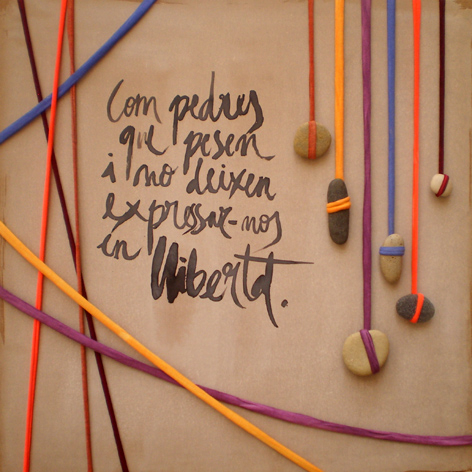 Com pedres
que pesen
i no deixen
expressar-nos
en llibertat.